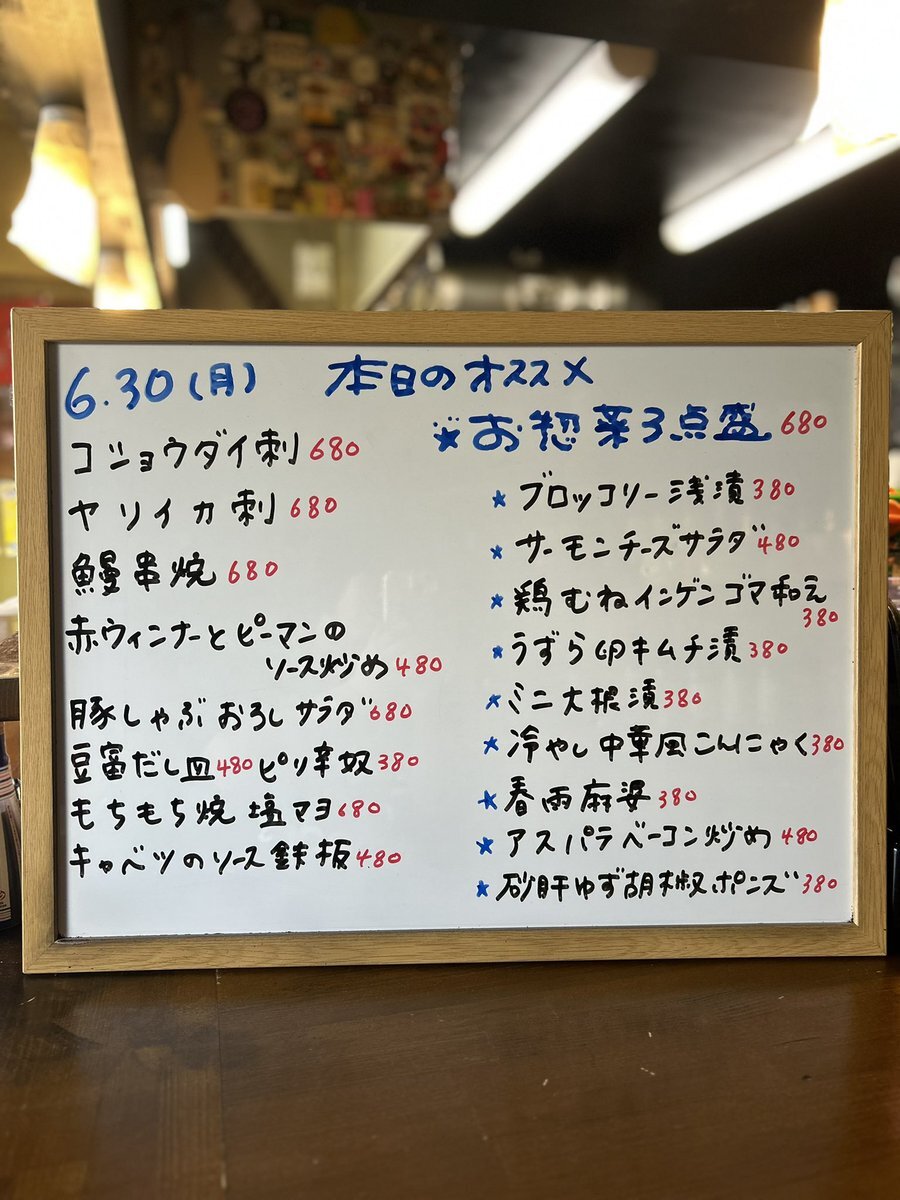 6.30(月) 本日のオススメ
コショウダイ刺 680
ヤリイカ刺 680
鰻串焼 680
赤ウィンナーとピーマンの
ソース炒め 480
豚しゃぶおろしサラダ 680
豆富だし皿 480 ピリ辛奴 380
もちもち焼 塩マヨ 680
キャベツのソース鉄板 480
★お惣菜3点盛 680
★ブロッコリー浅漬 380
★サーモンチーズサラダ 480
★鶏むねインゲンゴマ和え
380
★うずら卵キムチ漬 380
★ミニ大根漬 380
★冷やし中華風こんにゃく 380
★春雨麻婆 380
★アスパラベーコン炒め 480
★砂肝ゆず胡椒ポンズ 380